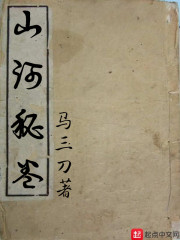 山河秘卷
马三刀著
起点中文网